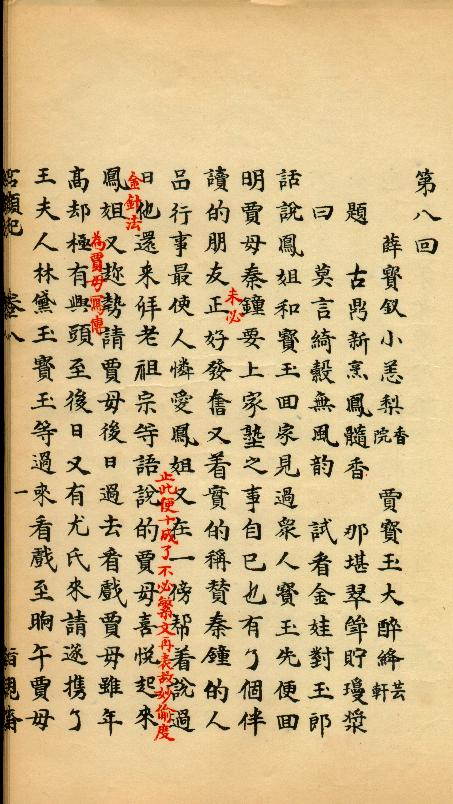 第八回
薛寶釵小恙梨香院 賈寶玉大醉絳芸軒
題 古鼎新烹鳳髓香 那堪翠斝貯瓊漿
曰 莫言綺縠無風韵 試看金娃對玉郎
話說鳳姐和寳玉回家見過衆人寳玉先便回
明賈母秦鍾要上家塾之事自已也有了個伴
讀的朋友正好發奮又着實的稱賛秦鍾的人
未必
品行事最使人憐愛鳳姐又在一傍帮着說過
止此便十成了不必繁文再表故妙偷度
日他還来拜老祖宗等語說的賈母喜悦起來
金針法
鳳姐又趂勢請賈母後日過去看戲賈母雖年
為賈母寫傳
髙却極有興頭至後日又有尤氏來請遂携了
王夫人林黛玉寳玉等過來看戲至晌午賈母
卷八
一